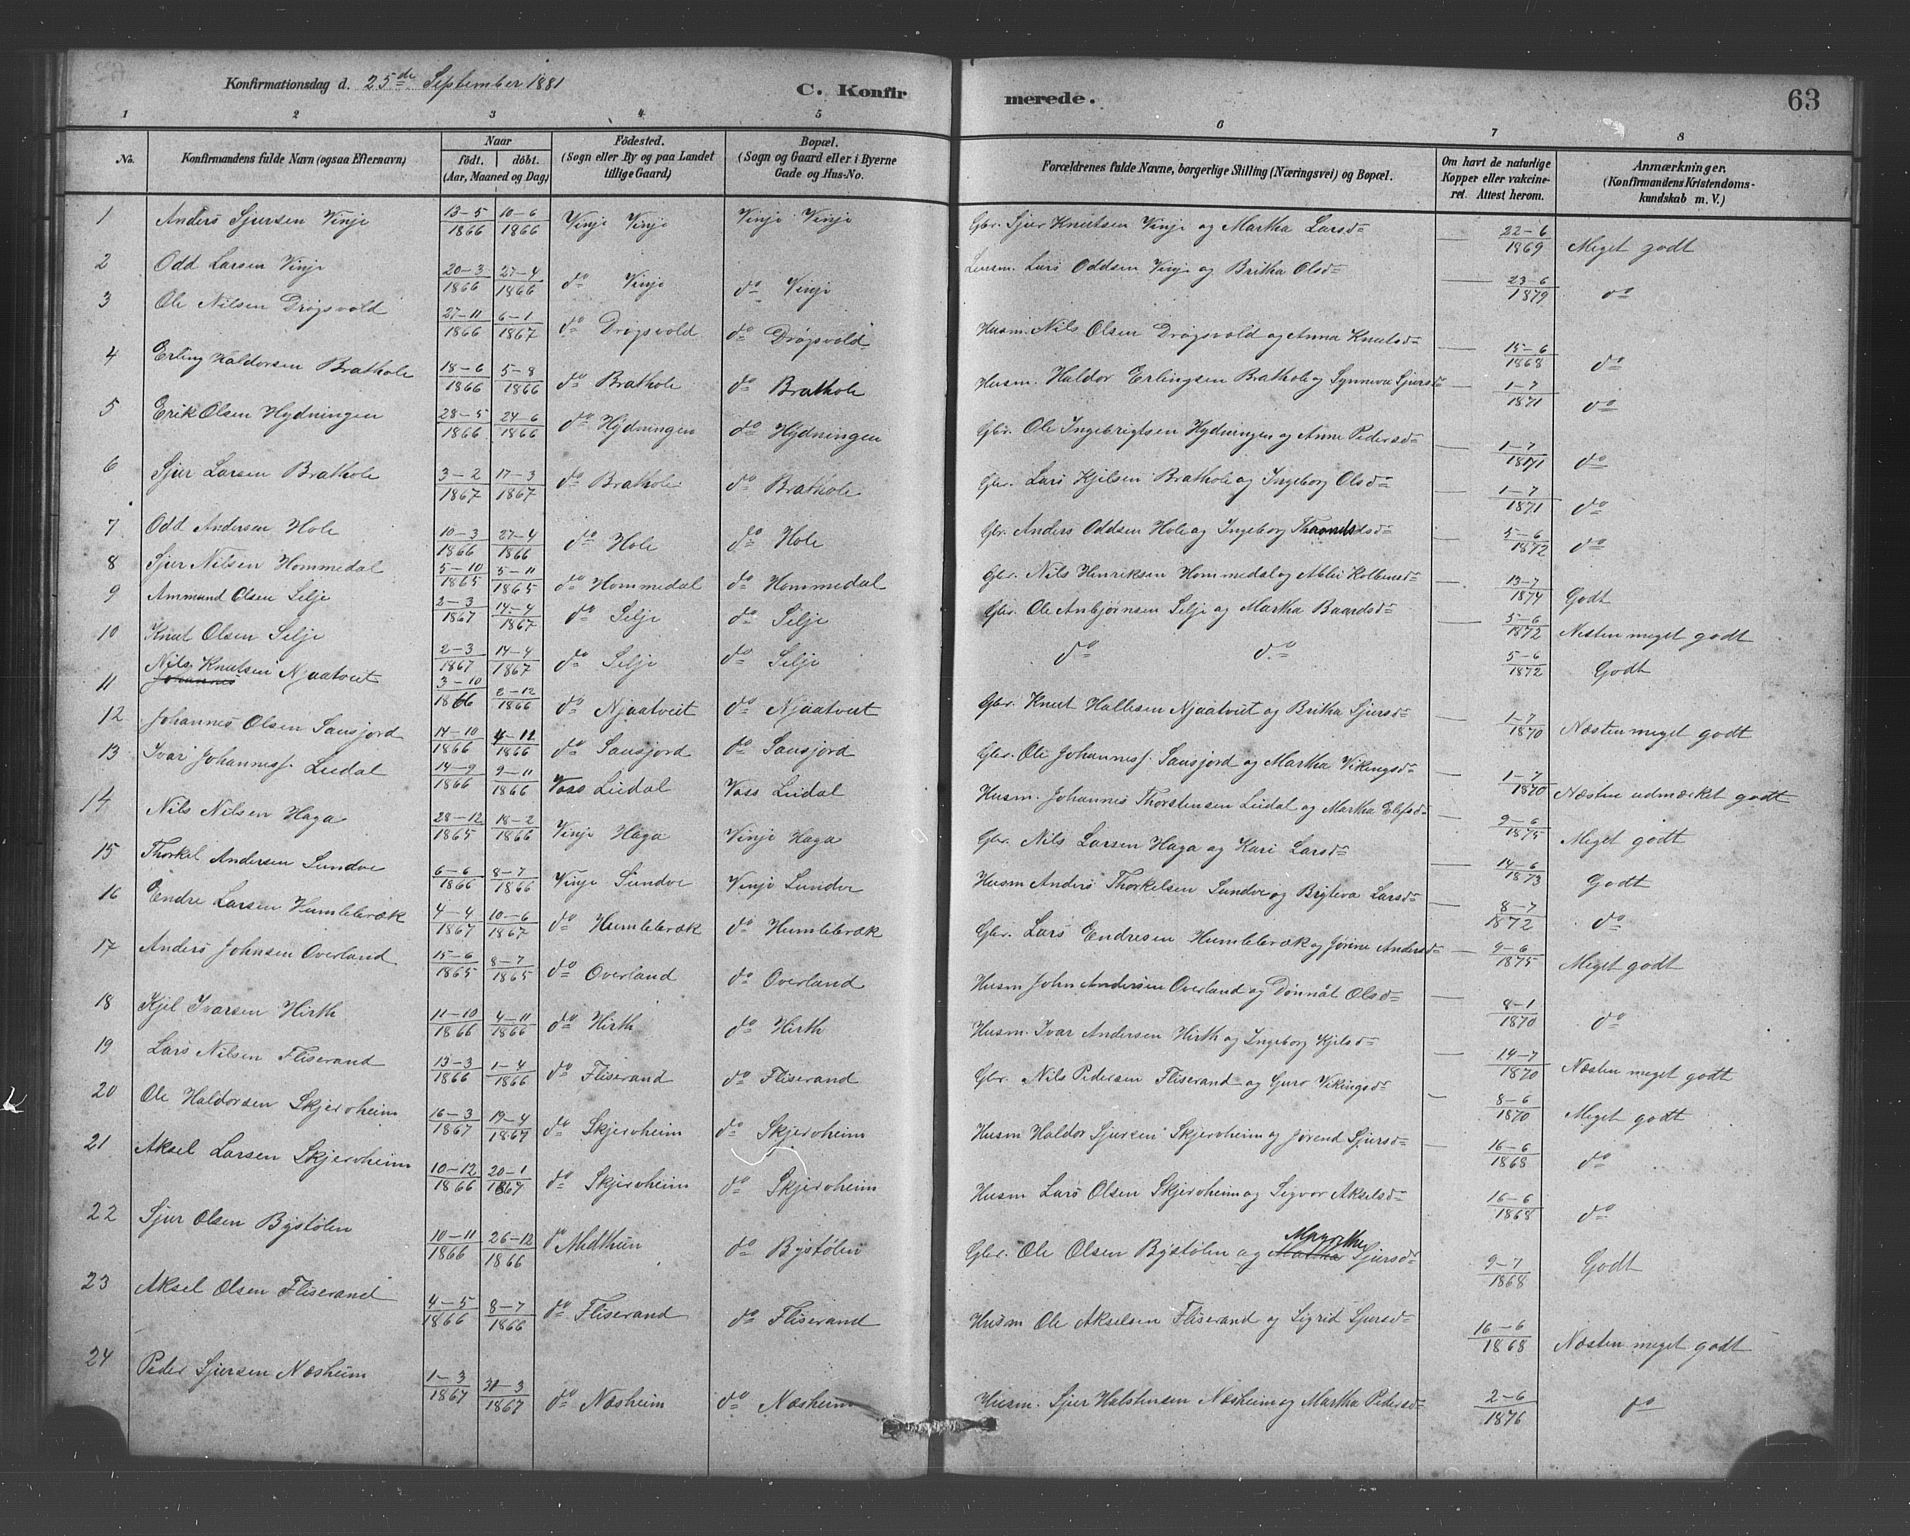 Konfirmationsdag d. 25de September 1881 C. Konfirmerede. 63
1 2 3 4 5 6 7 8
No. Konfirmandens fulde Navn (ogsaa Efternavn) Naar født. døbt. (Aar, Maaned og Dag) Fødested. (Sogn eller By og paa Landet tillige Gaard) Bopæl. (Sogn og Gaard eller i Byerne Gade og Hus-No. Forældrenes fulde Navne, borgerlige Stilling (Næringsvei) og Bopæl. Om havt de naturlige Kopper eller vakcineret. Attest herom. Anmærkninger. (Konfirmandens Kristendomskundskab m. V.)
1 Anders Sjursen Vinje 13-5 1866 10-6 1866 Vinje Vinje Vinje Vinje Gbr. Sjur Knutsen Vinje og Martha Larsd. — 22-6 1869 Meget godt
2 Odd Larsen Vinje 20-3 1866 27-4 1866 do Vinje do Vinje Lensm. Lars Oddsen Vinje og Britha Olsd. — 23-6 1879 do
3 Ole Nilsen Drøgsvold 27-11 1866 6-1 1867 do Drøgsvold do Drøgsvold Husm. Nils Olsen Drøgsvold og Anna Knutsd. — 15-6 1868 do
4 Erling Haldorsen Brathole 18-6 1866 5-8 1866 do Brathole do Brathole Husm. Haldor Erlingsen Brathole og Synneva Sjursd. 1-7 1871 do
5 Erik Olsen Hydningen 28-5 1866 24-6 1866 do Hydningen do Hydningen Gbr. Ole Ingebrigtsen Hydningen og Anne Pedersd. — 1-7 1871 do
6 Sjur Larsen Brathole 3-2 1867 17-3 1867 do Brathole do Brathole Gbr. Lars Kjelsen Brathole og Ingeborg Olsd. — 1-7 1871 do
7 Odd Andersen Hole 10-3 1866 27-4 1866 do Hole do Hole Gbr. Anders Oddsen Hole og Ingeborg — 5-6 1872 do
8 Sjur Nilsen Hommedal 5-10 1865 5-11 1865 do Hommedal do Hommedal Gbr. Nils Henriksen Hommedal og — 13-7 1874 Godt
9 Ammund Olsen Selje 2-3 1867 14-4 1867 do Selje do Selje Gbr. Ole Anbjørnsen Selje og Martha Baardsd. — 5-6 1872 Næsten meget godt
10 Knut Olsen Selje 2-3 1867 14-4 1867 do Selje do Selje do do 5-6 1872 Godt
11 Nils Johannes Knutsen Njaatveit 3-10 1866 2-12 1866 do Njaatveit do Njaatveit Gbr. Knut Hallesen Njaatveit og Britha Sjursd. — 1-7 1870 Næsten meget godt
12 Johannes Olsen Sausjord 14-10 1866 4-11 1866 do Sausjord do Sausjord Gbr. Ole Johanness. Sausjord og Martha Vikingsd. — 1-7 1870 Næsten udmærket godt
13 Ivar Johanness. Lildal 14-9 1866 9-11 1866 Voss Lildal Voss Lildal Husm. Johannes Thorstensen Lildal og Martha Elefsd. — 9-6 1875 Meget godt
14 Nils Nilsen Haga 28-12 1865 18-2 1866 Vinje Haga Vinje Haga Gbr. Nils Larsen Haga og Kari Larsd. — 14-6 1873 Godt
15 Thorkel Andersen Sundve 6-6 1866 8-7 1866 Vinje Sundve Vinje Sundve Husm Anders Thorkelsen Sundve og Larsd. — 8-7 1872 do
16 Endre Larsen Humlebræk 4-4 1867 10-6 1867 do Humlebræk do Humlebræk Gbr. Lars Endresen Humlebræk og Jørine Andersd. — 9-6 1875 Meget godt
17 Anders Johnsen Overland 15-6 1865 8-7 1865 do Overland do Overland Husm John Andersen Overland og Olsd. — 8-1 1870 do
18 Kjel Ivarsen Hirth 11-10 1866 4-11 1866 do Hirth do Hirth Husm. Ivar Andersen Hirth og Ingeborg Kjelsd. — 14-7 1870 Næsten meget godt
19 Lars Nilsen Fliserand 13-3 1866 1-4 1866 do Fliserand do Fliserand Gbr. Nils Pedersen Fliserand og Guro Vikingsd. — 8-6 1870 Meget godt
20 Ole Haldorsen Skjervheim 16-3 1867 19-4 1867 do Skjervheim do Skjervheim Husm Haldor Sjursen Skjervheim og Jørend Sjursd. — 16-6 1868 do
21 Aksel Larsen Skjervheim 10-12 1866 20-1 1867 do Skjervheim do Skjervheim Husm Lars Olsen Skjervheim og Sigvor Akselsd. 16-6 1868 do
22 Sjur Olsen Bystølen 10-11 1866 26-12 1866 do Midthun do Bystølen Gbr. Ole Olsen Bystølen og Martha Sjursd. 9-7 1868 Godt
23 Aksel Olsen Fliserand 4-5 1866 8-7 1866 do Fliserand do Fliserand Husm Ole Akselsen Fliserand og Sigrid Sjursd. 16-6 1868 Næsten meget godt
24 Peder Sjursen Næsheim 1-3 1867 31-3 1867 do Næsheim do Næsheim Husm. Sjur Halstensen Næsheim og Martha Pedersd. 2-6 1876 do